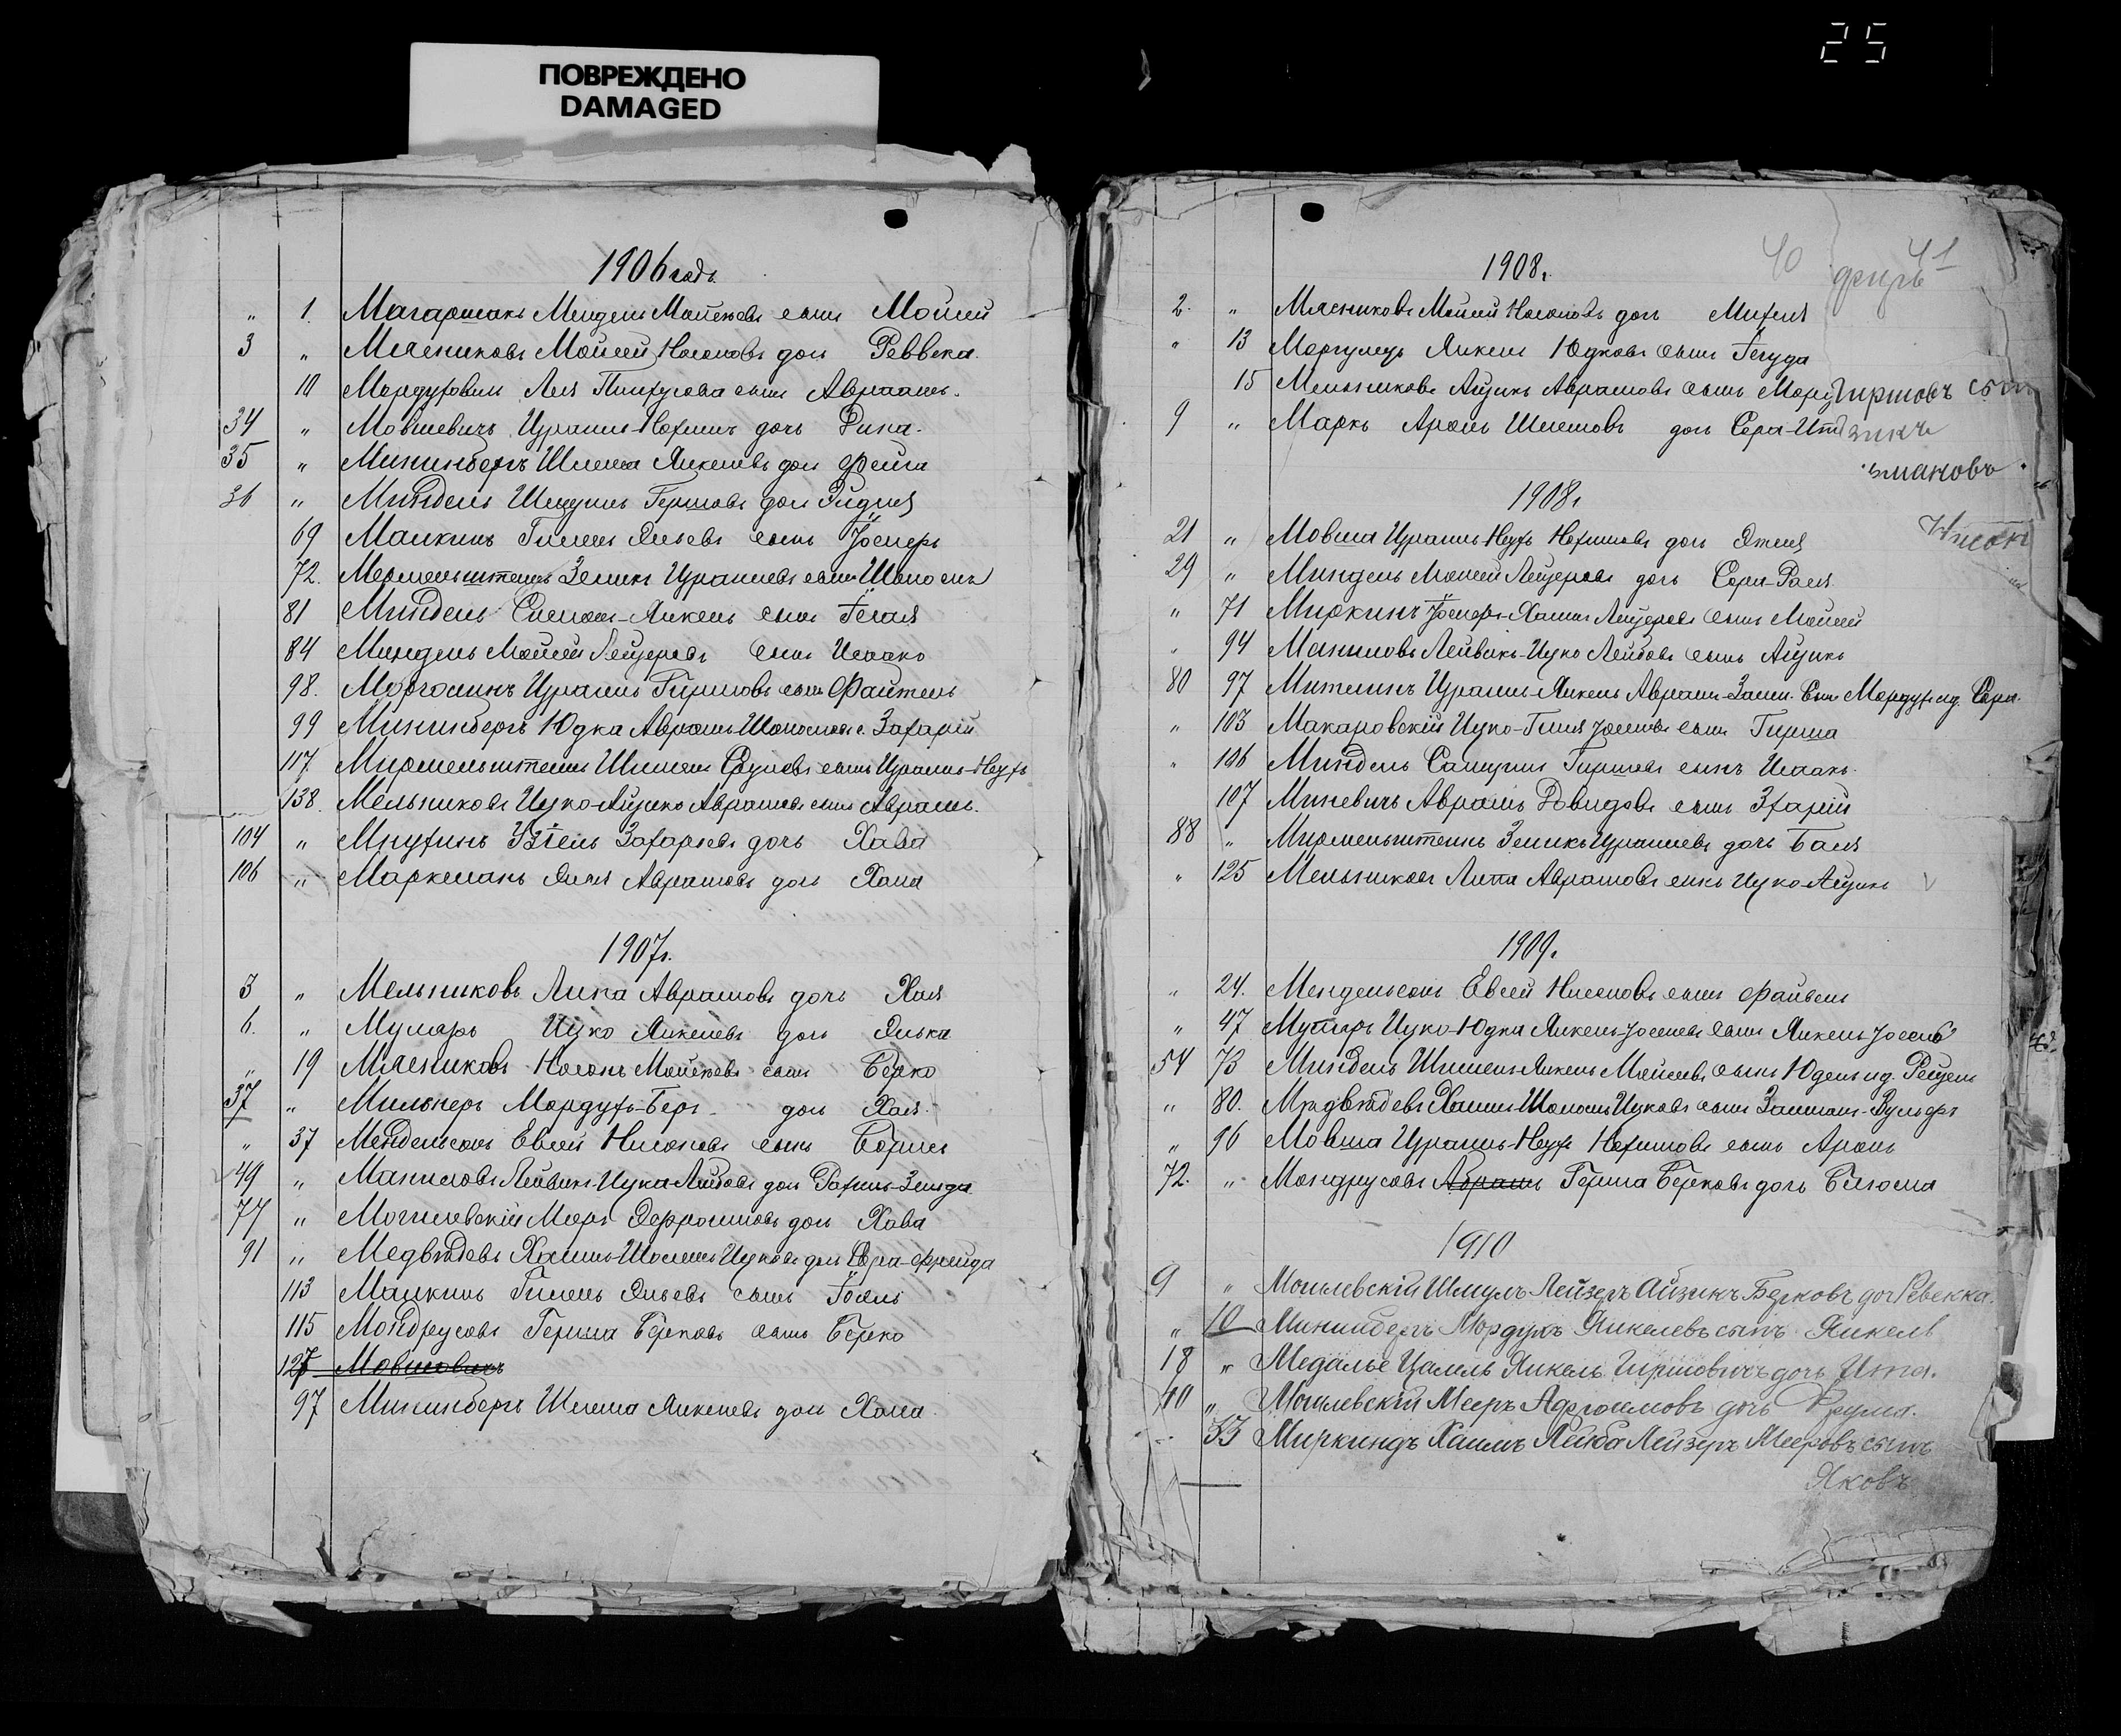 25
ПОВРЕЖДЕНО
DAMAGED
1906 годъ.
„ 1. Магаршакъ Мендель Мойсеевъ сынъ Мойсей
3 „ Мясниковъ Мойсей Носоновъ дочь Реввека.
10 Мордуховичъ Авраамъ.
34 „ Мовшевичъ Израиль-Нохимъ дочь Дина.
35 „ Мининбергъ Шлема Янкелевъ дочь Фейга
36 „ Миндель Гершовъ дочь
69 Малкинъ Гилель Эльевъ сынъ Іосифъ
72. Мермельштейнъ Зеликъ Израилевъ сынъ
81 Миндель Симонъ-Янкель сынъ
84 Миндель Мойсей Лейзеровъ сынъ Исаакъ
98. Марголинъ Израиль Гиршовъ сынъ Файтель
99 Мининбергъ Юдка Абрамъ-Шоломовъ с. Захарій
117 Мирмельштейнъ сынъ Израиль-Неухъ
138. Мельниковъ Ицко-Айзикъ Аврамовъ сынъ Аврамъ.
104 „ Захарьевъ дочь Хава
106 „ Маркманъ Эля Аврамовъ дочь Хана
1907г.
3 „ Мельниковъ Липа Аврамовъ дочь Хая
6. „ Муляръ Ицко Янкелевъ дочь Элька
„ 19 Мясниковъ Носонъ Мойсеевъ сынъ Берко
37 „ Мильнеръ Мордухъ-Беръ дочь Хая.
„ 37 Мендельсонъ Евсей Нисоновъ сынъ Борисъ
49 „ Маниловъ Лейвикъ-Ицка Лейбовъ дочь Рахиль-Зельда
77 „ Могилевскій Меръ Эфроимовъ дочь Хава
91 „ Медвѣдевъ Хаимъ-Шоломъ Ицковъ дочь Сора-Фрейда
113 Малкинъ Гилель Эльевъ сынъ Іоель
115 Мондрусовъ Герша Берковъ сынъ Берко
127 Мовшовичъ
97 Мининбергъ Шлема Янкелевъ дочь Хана
1908г.
40 41
2. „ Мясниковъ Мойсей Носоновъ дочь Михля
„ 13 Маргулецъ Янкель Юдковъ сынъ Іегуда
15 Мельниковъ Айзикъ Аврамовъ сынъ Морд
Гиршовъ сынъ
9 „ Маркъ Аронъ Шлемовъ дочь Сора-Ит
1908г
21 „ Мовша Израиль Неухъ Нохимовъ дочь Этля
29 „ Миндель Мойсей Лейзеровъ дочь Сора-Рася
„ 71 Миркинъ Іосифъ-Хаимъ Лейзеровъ сынъ Мойсей
„ 94 Маниловъ Лейвикъ-Ицко Лейбовъ сынъ Айзикъ
80 97 Митлинъ Израиль-Янкель Абрамъ-Залм. сынъ Мордухъ ид. Сора.
„ 103 Макаровскій Ицко-Гиля Іосіовъ сынъ Гирша
„ 106 Миндель Самуилъ Гиршовъ сынъ Исаакъ.
107 Миневичъ Аврамъ Довидовъ сынъ Зхарій
88 „ Мирмельштейнъ Зеликъ Израилевъ дочь Бася
„ 125 Мельниковъ Липа Аврамовъ сынъ Ицко-Айзикъ
1909г.
„ 24. Мендельсонъ Евсей Нисоновъ сынъ Файвель
„ 47 Муляръ Ицко-Юдка Янкель-Іоселевъ сынъ Янкель Іосель
54 73 Миндель Шлема-Янкель Мойсеевъ сынъ Юдель ид. Рейзель
„ 80. Медвѣдевъ Хаимъ-Шоломъ Ицковъ сынъ Залманъ-Вульфъ
„ 96 Мовша Израиль-Неухъ Нохимовъ сынъ Аронъ
72. „ Мондрусовъ Абрамъ Герша Берковъ дочь Блюма
1910
9 „ Могилевскій Шмулъ Лейзеръ Айзикъ Берковъ доч Ревекка.
„ 10 Мининбергъ Мордухъ Янкелевъ сынъ Янкель
18 „ Медалье Цалель Янкель Гиршовичъ дочь Итка.
40 „ Могилевскій Мееръ Афроимовъ дочь Фрума.
33 Миркиндъ Хаимъ Лейба Лейзеръ Мееровъ сынъ
Яковъ